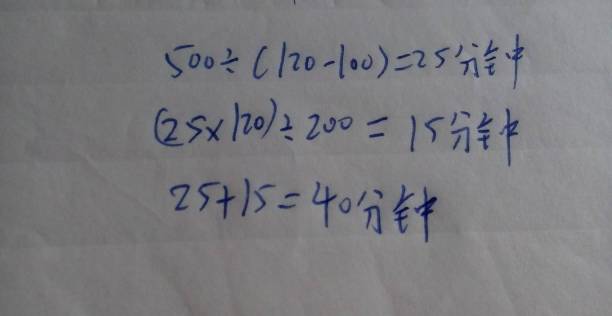 500÷(120-100)=25分钟
(25×120)÷200=15分钟
25+15=40分钟